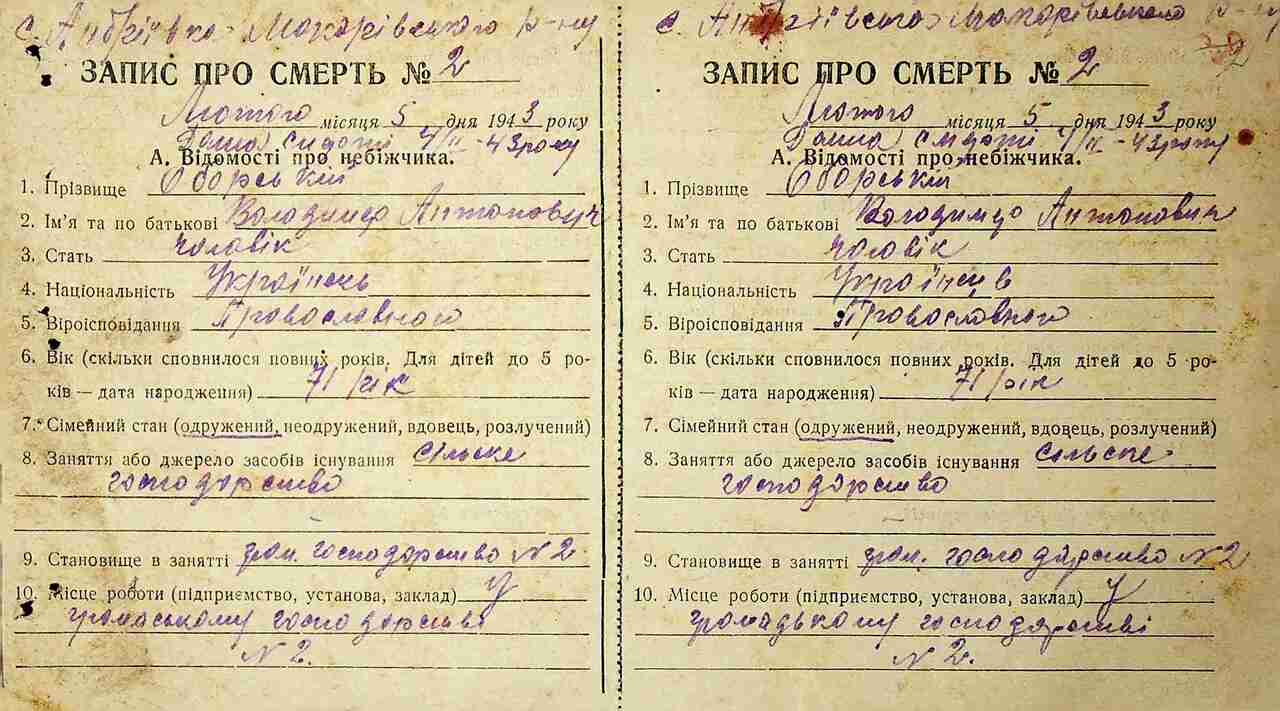 с. Андріївка Макарівського р-ну
ЗАПИС ПРО СМЕРТЬ № 2
Лютого місяця 5 дня 1943 року
смерти 4/II-43 року
А. Відомості про небіжчика.
1. Прізвище Оборський
2. Ім'я та по батькові Володимир Антонович
3. Стать чоловік
4. Національність Українець
5. Віроісповідання Православного
6. Вік (скільки сповнилося повних років. Для дітей до 5 ро-
ків — дата народження) 71 рік
7. Сімейний стан (одружений, неодружений, вдовець, розлучений)
8. Заняття або джерело засобів існування сільске
господарство
9. Становище в занятті гром. господарство N 2
10. Місце роботи (підприємство, установа, заклад) у
громадському господарстві
N 2.
с. Андріївка Макарівського р-ну
ЗАПИС ПРО СМЕРТЬ № 2
Лютого місяця 5 дня 1943 року
смерти 4/II-43 року
А. Відомості про небіжчика.
1. Прізвище Оборський
2. Ім'я та по батькові Володимир Антонович
3. Стать чоловік
4. Національність Українець
5. Віроісповідання Православного
6. Вік (скільки сповнилося повних років. Для дітей до 5 ро-
ків — дата народження) 71 рік
7. Сімейний стан (одружений, неодружений, вдовець, розлучений)
8. Заняття або джерело засобів існування сільске
господарство
9. Становище в занятті гром. господарство N 2
10. Місце роботи (підприємство, установа, заклад) у
громадському господарстві
N 2.